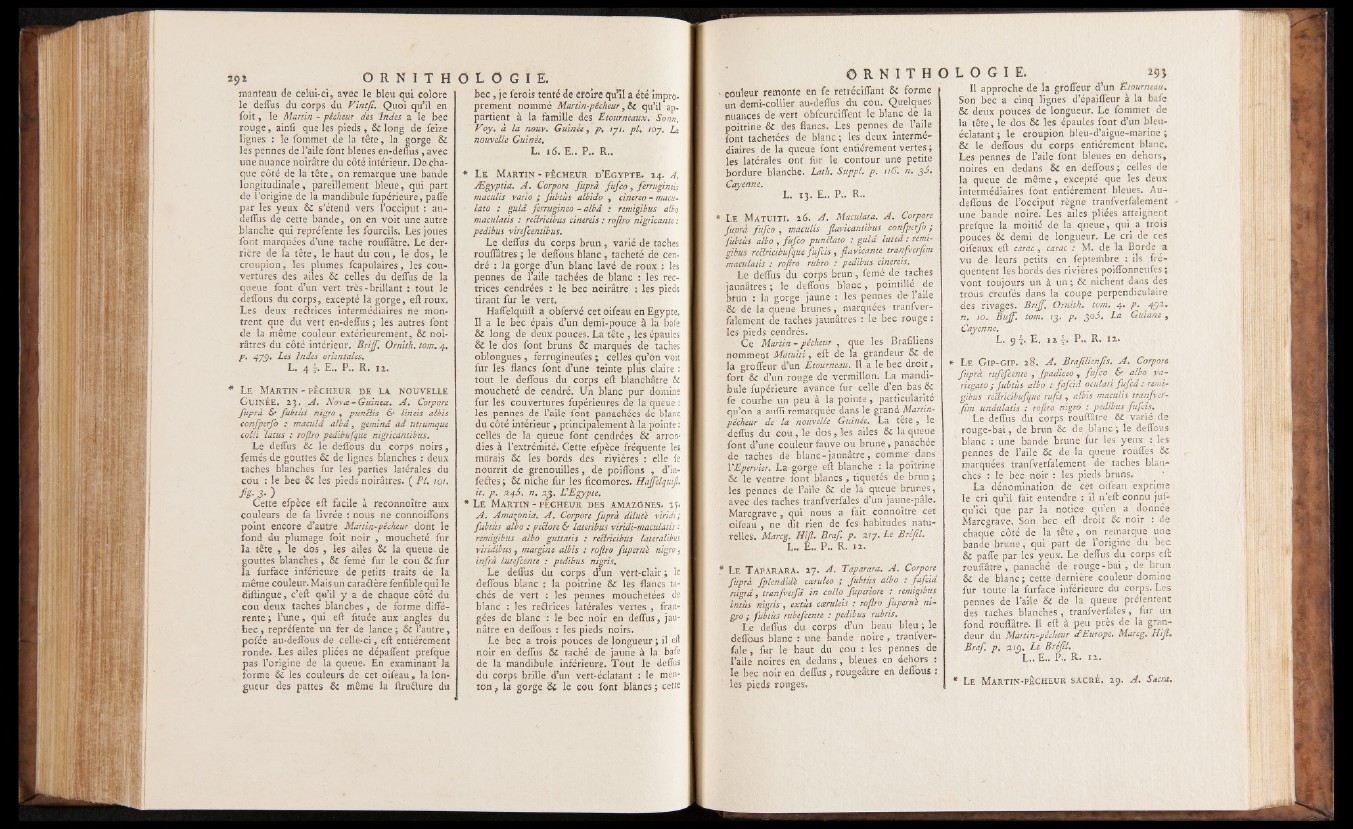 292 ORNITHOLOGIE.
manteau de celui-ci, avec le bleu qui colore
le deſſus du corps du Vintſi. Quoi qu'il en
ſoit, le Martin - pêcheur des Indes a le bec
rouge, ainſi que les pieds, & long de ſeize
lignes : le ſommet de la tête, la gorge &
les pennes de l'aile ſont bleues en-deſſus, avec
une nuance noirâtre du côté intérieur. De cha-
que côté de la tête, on remarque une bande
longitudinale, pareillement bleue, qui part
de l'origine de la mandibule ſupérieure, paſſe
par les yeux & s'étend vers l'occiput : au-
deſſus de cette bande, on en voit une autre
blanche qui repréſente les ſourcils. Les joues
ſont marquées d'une tache rouſſâtre. Le der-
rière de la tête, le haut du cou, le dos, le
croupion, les plumes ſcapulaires, les cou-
vertures des ailes & celles du deſſus de la
queue ſont d'un vert très-brillant : tout le
deſſous du corps, excepté la gorge, eſt roux.
Les deux rectrices intermédiaires ne mon-
trent que du vert en-deſſus ; les autres ſont
de la même couleur extérieurement, & noi-
râtres du côté intérieur. Briſſ. Ornith. tom. 4.
p. 479. Les Indes orientales.
L. 4 ½. E.. P.. R. 12.
* LE MARTIN - PÊCHEUR DE LA NOUVELLE
GUINÉE. 23. A. Novæ-Guineæ. A. Corpore
ſuprà & ſubtùs nigro, punctis & lineis albis
conſperſo : maculâ albâ, geminâ ad utrumque
colli latus : roſtro pedibuſque nigricantibus.
Le deſſus & le deſſous du corps noirs,
ſemés de gouttes & de lignes blanches : deux
taches blanches ſur les parties latérales du
cou : le bec & les pieds noirâtres. ( Pl. 101.
fig. 3. )
Cette eſpèce eſt facile à reconnoître aux
couleurs de ſa livrée : nous ne connoiſſons
point encore d'autre Martin-pêcheur dont le
fond du plumage ſoit noir, moucheté ſur
la tête, le dos, les ailes & la queue de
gouttes blanches, & ſemé ſur le cou & ſur
ſa ſurface inférieure de petits traits de la
même couleur. Mais un caractère ſenſible qui le
diſtingue, c'eſt qu'il y a de chaque côté du
cou deux taches blanches, de forme diffé-
rente ; l'une, qui eſt ſituée aux angles du
bec, repréſente un fer de lance ; & l'autre,
poſée au-deſſous de celle-ci, eſt entiérement
ronde. Les ailes pliées ne dépaſſent preſque
pas l'origine de la queue. En examinant la
forme & les couleurs de cet oiſeau, la lon-
gueur des pattes & même la ſtructure du
bec, je ſerois tenté de croire qu'il a été impro-
prement nommé Martin-pêcheur, & qu'il ap-
partient à la famille des Etourneaux. Sonn.
Voy. à la nouv. Guinée, p. 171. pl. 107. La
nouvelle Guinée.
L. 16. E.. P.. R..
* LE MARTIN - PÊCHEUR D'EGYPTE. 24. A.
Ægyptia. A. Corpore ſuprà fuſco, ferrugineis
maculis vario ; ſubtùs albido, cinereo - macu-
lato : gulâ ferrugineo - albâ : remigibus albo
maculatis : rectricibus cinereis : roſtro nigricante :
pedibus vireſcentibus.
Le deſſus du corps brun, varié de taches
rouſſâtres ; le deſſous blanc, tacheté de cen-
dré : la gorge d'un blanc lavé de roux : les
pennes de l'aile tachées de blanc : les rec-
trices cendrées : le bec noirâtre : les pieds
tirant ſur le vert.
Haſſelquiſt a obſervé cet oiſeau en Egypte.
Il a le bec épais d'un demi-pouce à la baſe
& long de deux pouces. La tête, les épaules
& le dos ſont bruns & marqués de taches
oblongues, ferrugineuſes ; celles qu'on voit
ſur les flancs ſont d'une teinte plus claire :
tout le deſſous du corps eſt blanchâtre &
moucheté de cendré. Un blanc pur domine
ſur les couvertures ſupérieures de la queue :
les pennes de l'aile ſont panachées de blanc
du côté intérieur, principalement à la pointe :
celles de la queue ſont cendrées & arron-
dies à l'extrémité. Cette eſpèce fréquente les
marais & les bords des rivières : elle ſe
nourrit de grenouilles, de poiſſons, d'in-
ſectes ; & niche ſur les ſicomores. Haſſelquiſt.
it. p. 245. n. 23. L'Egypte.
* LE MARTIN - PÊCHEUR DES AMAZONES. 25.
A. Amazonia. A. Corpore ſuprà dilutè viridi ;
ſubtùs albo : pectore & lateribus viridi-maculatis :
remigibus albo guttatis : rectricibus lateralibus
viridibus, margine albis : roſtro ſupernè nigro,
infrà luteſcente : pedibus nigris.
Le deſſus du corps d'un vert-clair ; le
deſſous blanc : la poitrine & les flancs ta-
chés de vert : les pennes mouchetées de
blanc : les rectrices latérales vertes, fran-
gées de blanc : le bec noir en deſſus, jau-
nâtre en deſſous : les pieds noirs.
Le bec a trois pouces de longueur ; il eſt
noir en deſſus & taché de jaune à la baſe
de la mandibule inférieure. Tout le deſſus
du corps brille d'un vert-éclatant : le men-
ton, la gorge & le cou ſont blancs ; cette
ORNITHOLOGIE. 293
couleur remonte en ſe retréciſſant & forme
un demi-collier au-deſſus du cou. Quelques
nuances de vert obſcurciſſent le blanc de la
poitrine & des flancs. Les pennes de l'aile
ſont tachetées de blanc ; les deux intermé-
diaires de la queue ſont entiérement vertes ;
les latérales ont ſur le contour une petite
bordure blanche. Lath. Suppl. p. 116. n. 35.
Cayenne.
L. 13. E.. P.. R..
* LE MATUITI. 26. A. Maculata. A. Corpore
ſuprà fuſco, maculis flavicantibus conſperſo ;
ſubtùs albo, fuſco punctato : gulâ luteâ : remi-
gibus rectricibuſque fuſcis, flavicante tranſverſim
maculatis : roſtro rubro : pedibus cinereis.
Le deſſus du corps brun, ſemé de taches
jaunâtres ; le deſſous blanc, pointillé de
brun : la gorge jaune : les pennes de l'aile
& de la queue brunes, marquées tranſver-
ſalement de taches jaunâtres : le bec rouge :
les pieds cendrés.
Ce Martin - pêcheur, que les Braſiliens
nomment Matuiti, eſt de la grandeur & de
la groſſeur d'un Etourneau. Il a le bec droit,
fort & d'un rouge de vermillon. La mandi-
bule ſupérieure avance ſur celle d'en bas &
ſe courbe un peu à la pointe, particularité
qu'on a auſſi remarquée dans le grand Martin-
pêcheur de la nouvelle Guinée. La tête, le
deſſus du cou, le dos, les ailes & la queue
ſont d'une couleur fauve ou brune, panachée
de taches de blanc-jaunâtre, comme dans
l'Epervier. La gorge eſt blanche : la poitrine
& le ventre ſont blancs, tiquetés de brun ;
les pennes de l'aile & de la queue brunes,
avec des taches tranſverſales d'un jaune-pâle.
Marcgrave, qui nous a fait connoître cet
oiſeau, ne dit rien de ſes habitudes natu-
relles. Marcg. Hiſt. Braſ. p. 217. Le Bréſil.
L.. E.. P.. R. 12.
* LE TAPARARA. 27. A. Taparara. A. Corpore
ſuprà ſplendidè cæruleo ; ſubtùs albo : faſciâ
nigrâ, tranſverſâ in collo ſuperiore : remigibus
intùs nigris, extùs cæruleis : roſtro ſupernè ni-
gro ; ſubtùs rubeſcente : pedibus rubris.
Le deſſus du corps d'un beau bleu ; le
deſſous blanc : une bande noire, tranſver-
ſale, ſur le haut du cou : les pennes de
l'aile noires en dedans, bleues en dehors :
le bec noir en deſſus, rougeâtre en deſſous :
les pieds rouges.
Il approche de la groſſeur d'un Etourneau.
Son bec a cinq lignes d'épaiſſeur à la baſe
& deux pouces de longueur. Le ſommet de
la tête, le dos & les épaules ſont d'un bleu-
éclatant ; le croupion bleu-d'aigue-marine ;
& le deſſous du corps entiérement blanc.
Les pennes de l'aile ſont bleues en dehors,
noires en dedans & en deſſous ; celles de
la queue de même, excepté que les deux
intermédiaires ſont entiérement bleues. Au-
deſſous de l'occiput règne tranſverſalement
une bande noire. Les ailes pliées atteignent
preſque la moitié de la queue, qui a trois
pouces & demi de longueur. Le cri de ces
oiſeaux eſt carac, carac : M. de la Borde a
vu de leurs petits en ſeptembre : ils fré-
quentent les bords des rivières poiſſonneuſes ;
vont toujours un à un ; & nichent dans des
trous creuſés dans la coupe perpendiculaire
des rivages. Briſſ. Ornith. tom. 4. p. 492.
n. 10. Buff. tom. 13. p. 305. La Guiane,
Cayenne.
L. 9 ½. E. 12 ½. P.. R. 12.
* LE GIP-GIP. 28. A. Braſilienſis. A. Corpore
ſuprà rufeſcente, ſpadiceo, fuſco & albo va-
riegato ; ſubtùs albo : faſciâ oculari fuſcâ : remi-
gibus rectricibuſque rufis, albis maculis tranſver-
ſim undulatis : roſtro nigro : pedibus fuſcis.
Le deſſus du corps rouſſâtre & varié de
rouge-bai, de brun & de blanc ; le deſſous
blanc : une bande brune ſur les yeux : les
pennes de l'aile & de la queue rouſſes &
marquées tranſverſalement de taches blan-
ches : le bec noir : les pieds bruns.
La dénomination de cet oiſeau exprime
le cri qu'il fait entendre : il n'eſt connu juſ-
qu'ici que par la notice qu'en a donnée
Marcgrave. Son bec eſt droit & noir : de
chaque côté de la tête, on remarque une
bande brune, qui part de l'origine du bec
& paſſe par les yeux. Le deſſus du corps eſt
rouſſâtre, panaché de rouge-bai, de brun
& de blanc ; cette dernière couleur domine
ſur toute la ſurface inférieure du corps. Les
pennes de l'aile & de la queue préſentent
des taches blanches, tranſverſales, ſur un
fond rouſſâtre. Il eſt à peu près de la gran-
deur du Martin-pêcheur d'Europe. Marcg. Hiſt.
Braſ. p. 219. Le Bréſil.
L.. E.. P.. R. 12.
* LE MARTIN-PÊCHEUR SACRÉ. 29. A. Sacra.